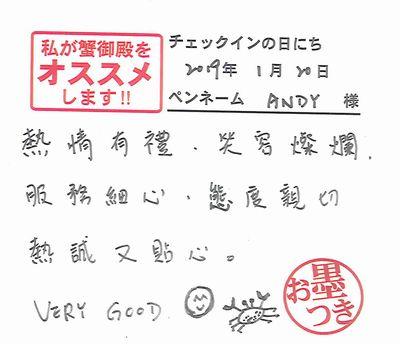 私が蟹御殿を
オススメ
します!!
チェックインの日にち
2019年 1月 20日
ペンネーム ANDY 様
熱情有禮、笑容燦爛,
服務細心、態度親切
熱誠又貼心。
VERY GOOD
お墨つき